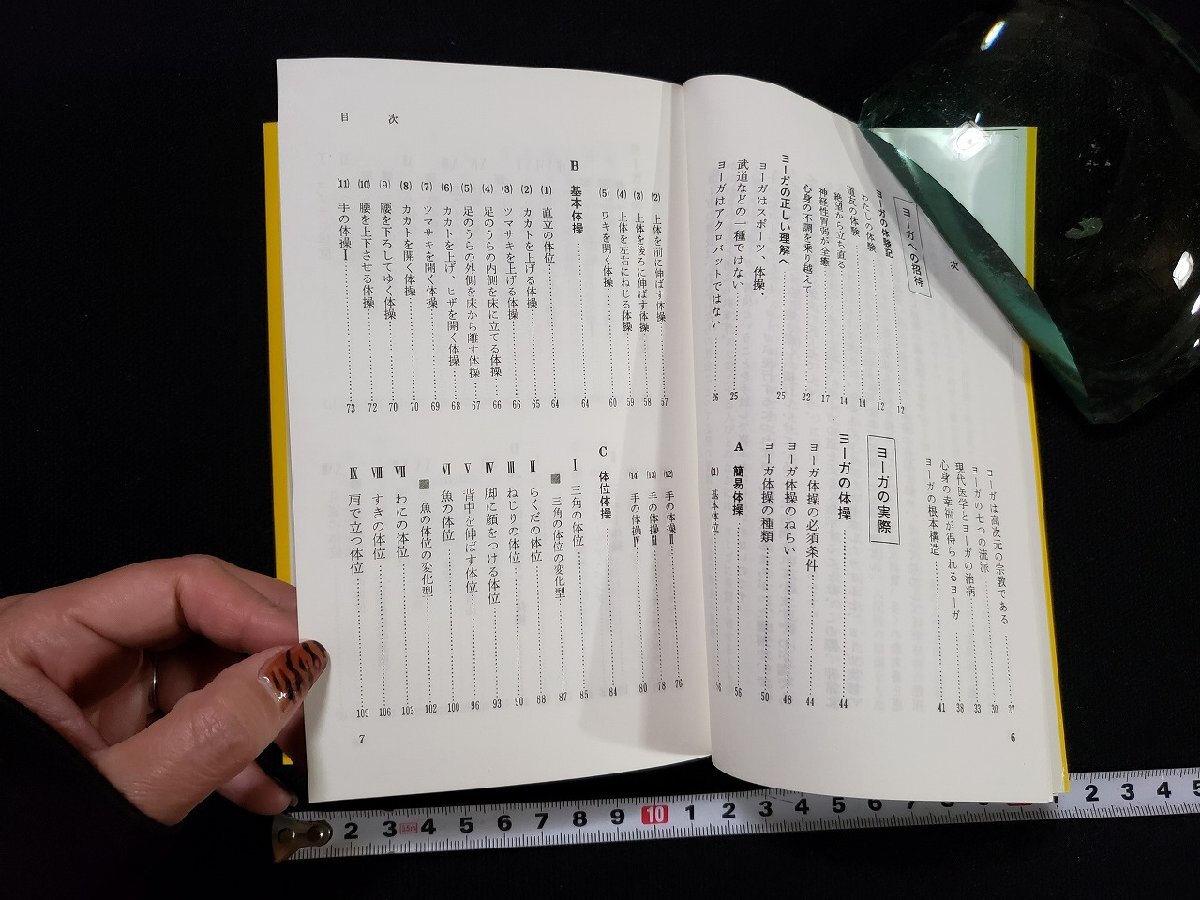 次
ヨーガへの招待
ヨーガの体験記……12
わたしの体験……12
道友の体験……14
絶望から立ち直る……14
神経性胃弱が全癒……17
心身の不調を乗り越えて……22
ヨーガの正しい理解へ……25
ヨーガはスポーツ、体操、
武道などの一種ではない……25
ヨーガはアクロバットではない……26
ヨーガは高次元の宗教である
ヨーガの七つの流派……30
現代医学とヨーガの治病……33
心身の幸福が得られるヨーガ……38
ヨーガの根本構造……41
ヨーガの実際
ヨーガの体操……44
ヨーガ体操の必須条件……44
ヨーガ体操のねらい……48
ヨーガ体操の種類……50
A 簡易体操……56
(1) 基本体位……56
6
目次
(2) 上体を前に伸ばす体操……57
(3) 上体を後ろに伸ばす体操……58
(4) 上体を左右にねじる体操……59
(5) ワキを開く体操……60
B 基本体操……64
(1) 直立の体位……64
(2) カカトを上げる体操……65
(3) ツマサキを上げる体操……66
(4) 足のうらの内側を床に立てる体操……66
(5) 足のうらの外側を床から離す体操……67
(6) カカトを上げ、ヒザを開く体操……68
(7) ツマサキを開く体操……69
(8) カカトを開く体操……70
(9) 腰を下ろしてゆく体操……70
(10) 腰を上下させる体操……72
(11) 手の体操Ⅰ……73
(12) 手の体操Ⅱ……76
(13) 手の体操Ⅲ……78
(14) 手の体操Ⅳ……80
C 体位体操……84
Ⅰ 三角の体位……85
三角の体位の変化型……87
Ⅱ らくだの体位……88
Ⅲ ねじりの体位……90
Ⅳ 脚に顔をつける体位……93
Ⅴ 背中を伸ばす体位……96
Ⅵ 魚の体位……100
魚の体位の変化型……102
Ⅶ わにの体位……103
Ⅷ すきの体位……106
Ⅸ 肩で立つ体位……109
7
2 3 4 5 6 7 8 9 10 1 2 3 4 5 6 7 8 9 1 2 3 4 5